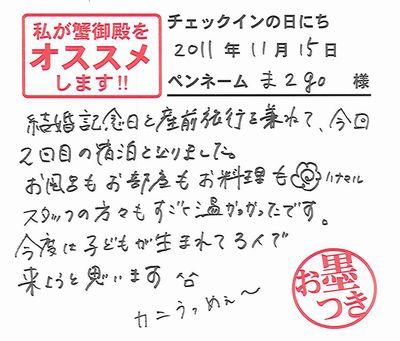 私が蟹御殿を
オススメ
します!!
チェックインの日にち
2011 年 11 月 15 日
ペンネーム ま2go 様
結婚記念日と産前旅行を兼ねて、今回
2回目の宿泊となりました。
お風呂もお部屋もお料理も ハナマル
スタッフの方々もすごく温かかったです。
今度は子どもが生まれて3人で
来ようと思います ^^
カニうっめぇ〜
お墨つき